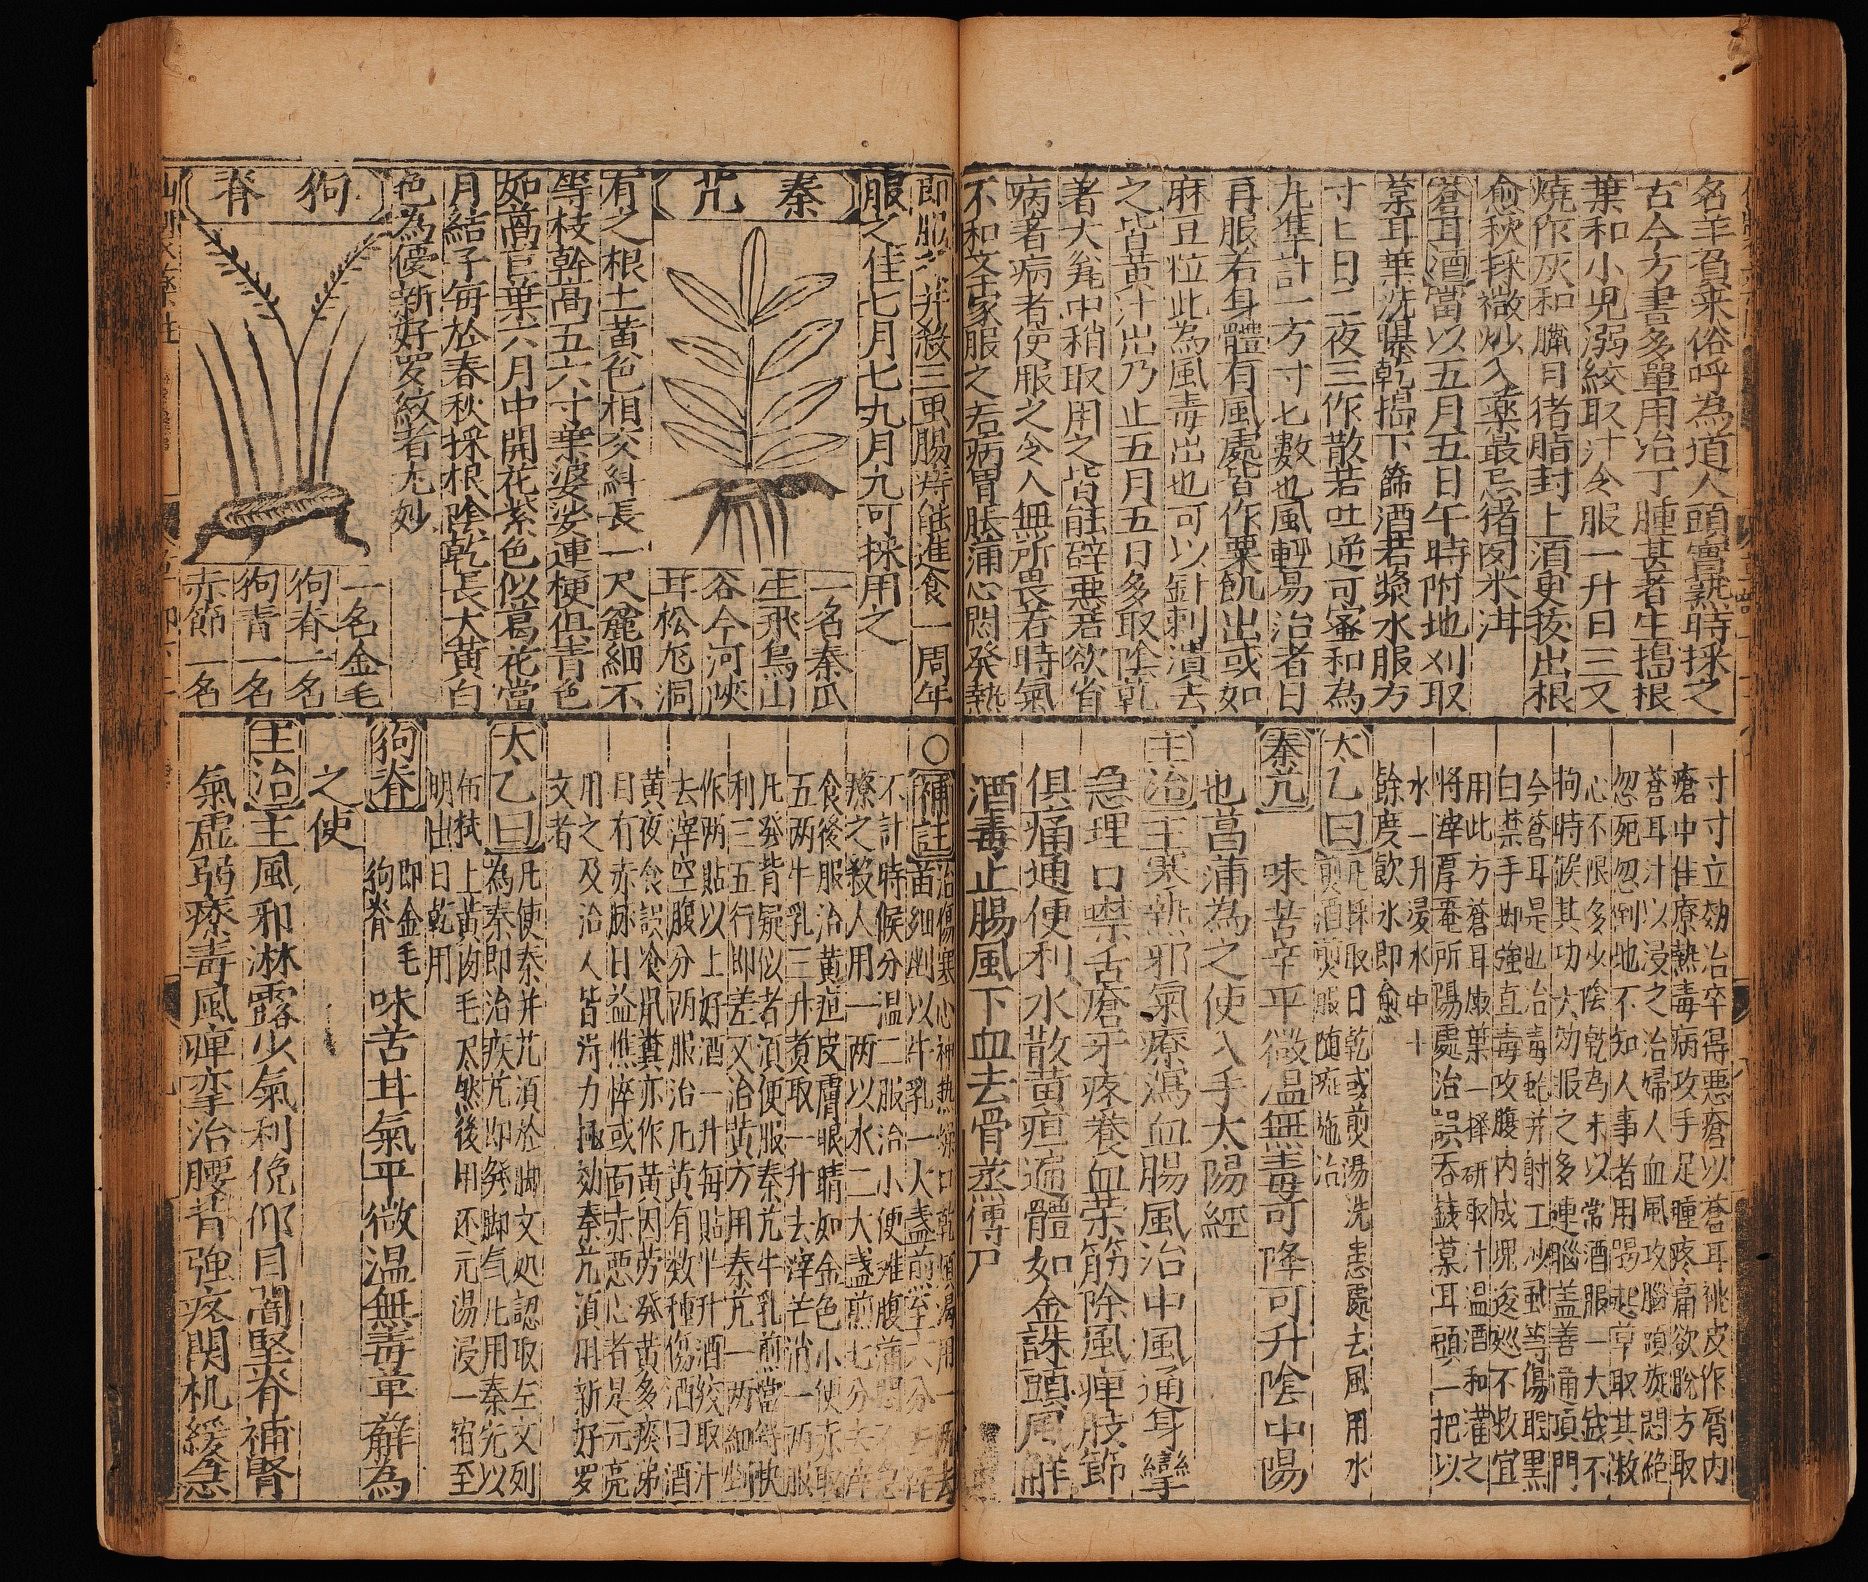 名羊負来俗呼為道人頭實熟時採之
古今方書多單用治丁腫甚者生搗根
葉和小兒溺絞取汁令服一升日三又
燒作灰和臘月猪脂封上須更拔出根
愈秋採微炒入藥最忌猪肉米泔
蒼耳酒當以五月五日午時附地刈取
葉耳葉洗曝乾搗下篩酒若漿水服方
寸匕日二夜三作散若吐逆可蜜和為
丸準計一方寸匕數也風輕易治者日
再服若身體有風處皆作粟肌出或如
麻豆粒此為風毒出也可以針刺潰去
之皆黃汁出乃止五月五日多取陰乾
著大瓮中稍取用之皆能辟惡若欲省
病者病者便服之令人無所畏若時氣
不和至家服之若病胃脹滿心悶發熱
即服之并殺三虫腸痔能進食一周年
服之佳七月七九月九可採用之
秦艽
一名秦瓜
生飛鳥山
谷今河陝
耳松危洞
有之根土黃色相交糾長一尺麤細不
等枝幹高五六寸葉婆娑連梗俱青色
如萵苣葉六月中開花紫色似葛花當
月結子每於春秋採根陰乾長大黃白
色為優新好罗紋者尤妙
狗脊
一名金毛
狗脊一名
狗青一名
赤節一名
寸寸立効治卒得惡瘡以蒼耳桃皮作屑內
瘡中佳療熱毒病攻手足腫疼痛欲脫方取
蒼耳汁以浸之治婦人血風攻腦頭旋悶絕
忽死忽倒地不知人事者用喝起草取其嫩
心不限多少陰乾為末以常酒服一大錢不
拘時候其功大効服之多連腦蓋善通頂門
今蒼耳是也治毒蛇并射工沙虱等傷眼黑
口禁手脚強直毒攻腹內成塊逡巡不救宜
用此方蒼耳嫩葉一握研取汁溫酒和灌之
將滓厚罨所傷處治誤吞錢葉耳頭一把以
水一升浸水中十
餘度飲水即愈
太乙曰凡採取日乾或煎湯洗患處去風用水
煎酒煎服随症施治
秦艽 味苦辛平微温無毒可降可升陰中陽
也菖蒲為之使入手太陽經
主治主寒熱邪氣療瀉血腸風治中風通身攣
急理口噤舌瘡牙疼養血荣筋除風痺肢節
俱痛通便利水散黃疸遍體如金誅頭風解
酒毒止腸風下血去骨蒸傳尸
○補註治傷寒心神熱燥口乾煩渴用一兩去
苗細剉以牛乳一大盏煎至六分去滓
不計時候分温二服治小便难腹滿悶不急
療之殺人用一两以水二大盏煎七分去滓
食後服治黃疸皮膚眼睛如金色小便赤取
五两牛乳三升煑取一升去滓芒消一两服
凡發背疑似者須便服秦艽牛乳煎當得快
利三五行即差又治黃方用秦艽一两細剉
作两貼以上好酒一升每貼半升酒絞取汁
去滓空腹分两服治凡黃有数種傷酒曰酒
黃夜食誤食鼠糞亦作黃因劳發黃多痰涕
目有赤脉日益憔悴或面赤惡心者是元亮
用之及治人皆淂力極効秦艽須用新好罗
文者
太乙曰凡使秦并艽須於脚文処認取左文列
為秦即治疾艽即發脚气凡用秦先以
布拭上黃肉毛尽然後用还元湯浸一宿至
明出日乾用
狗脊 即金毛狗脊 味苦甘氣平微温無毒萆薢為
之使
主治主風邪淋露少氣利俛仰目闇堅脊補腎
氣虛弱療毒風痺挛治腰背強疼関机緩急